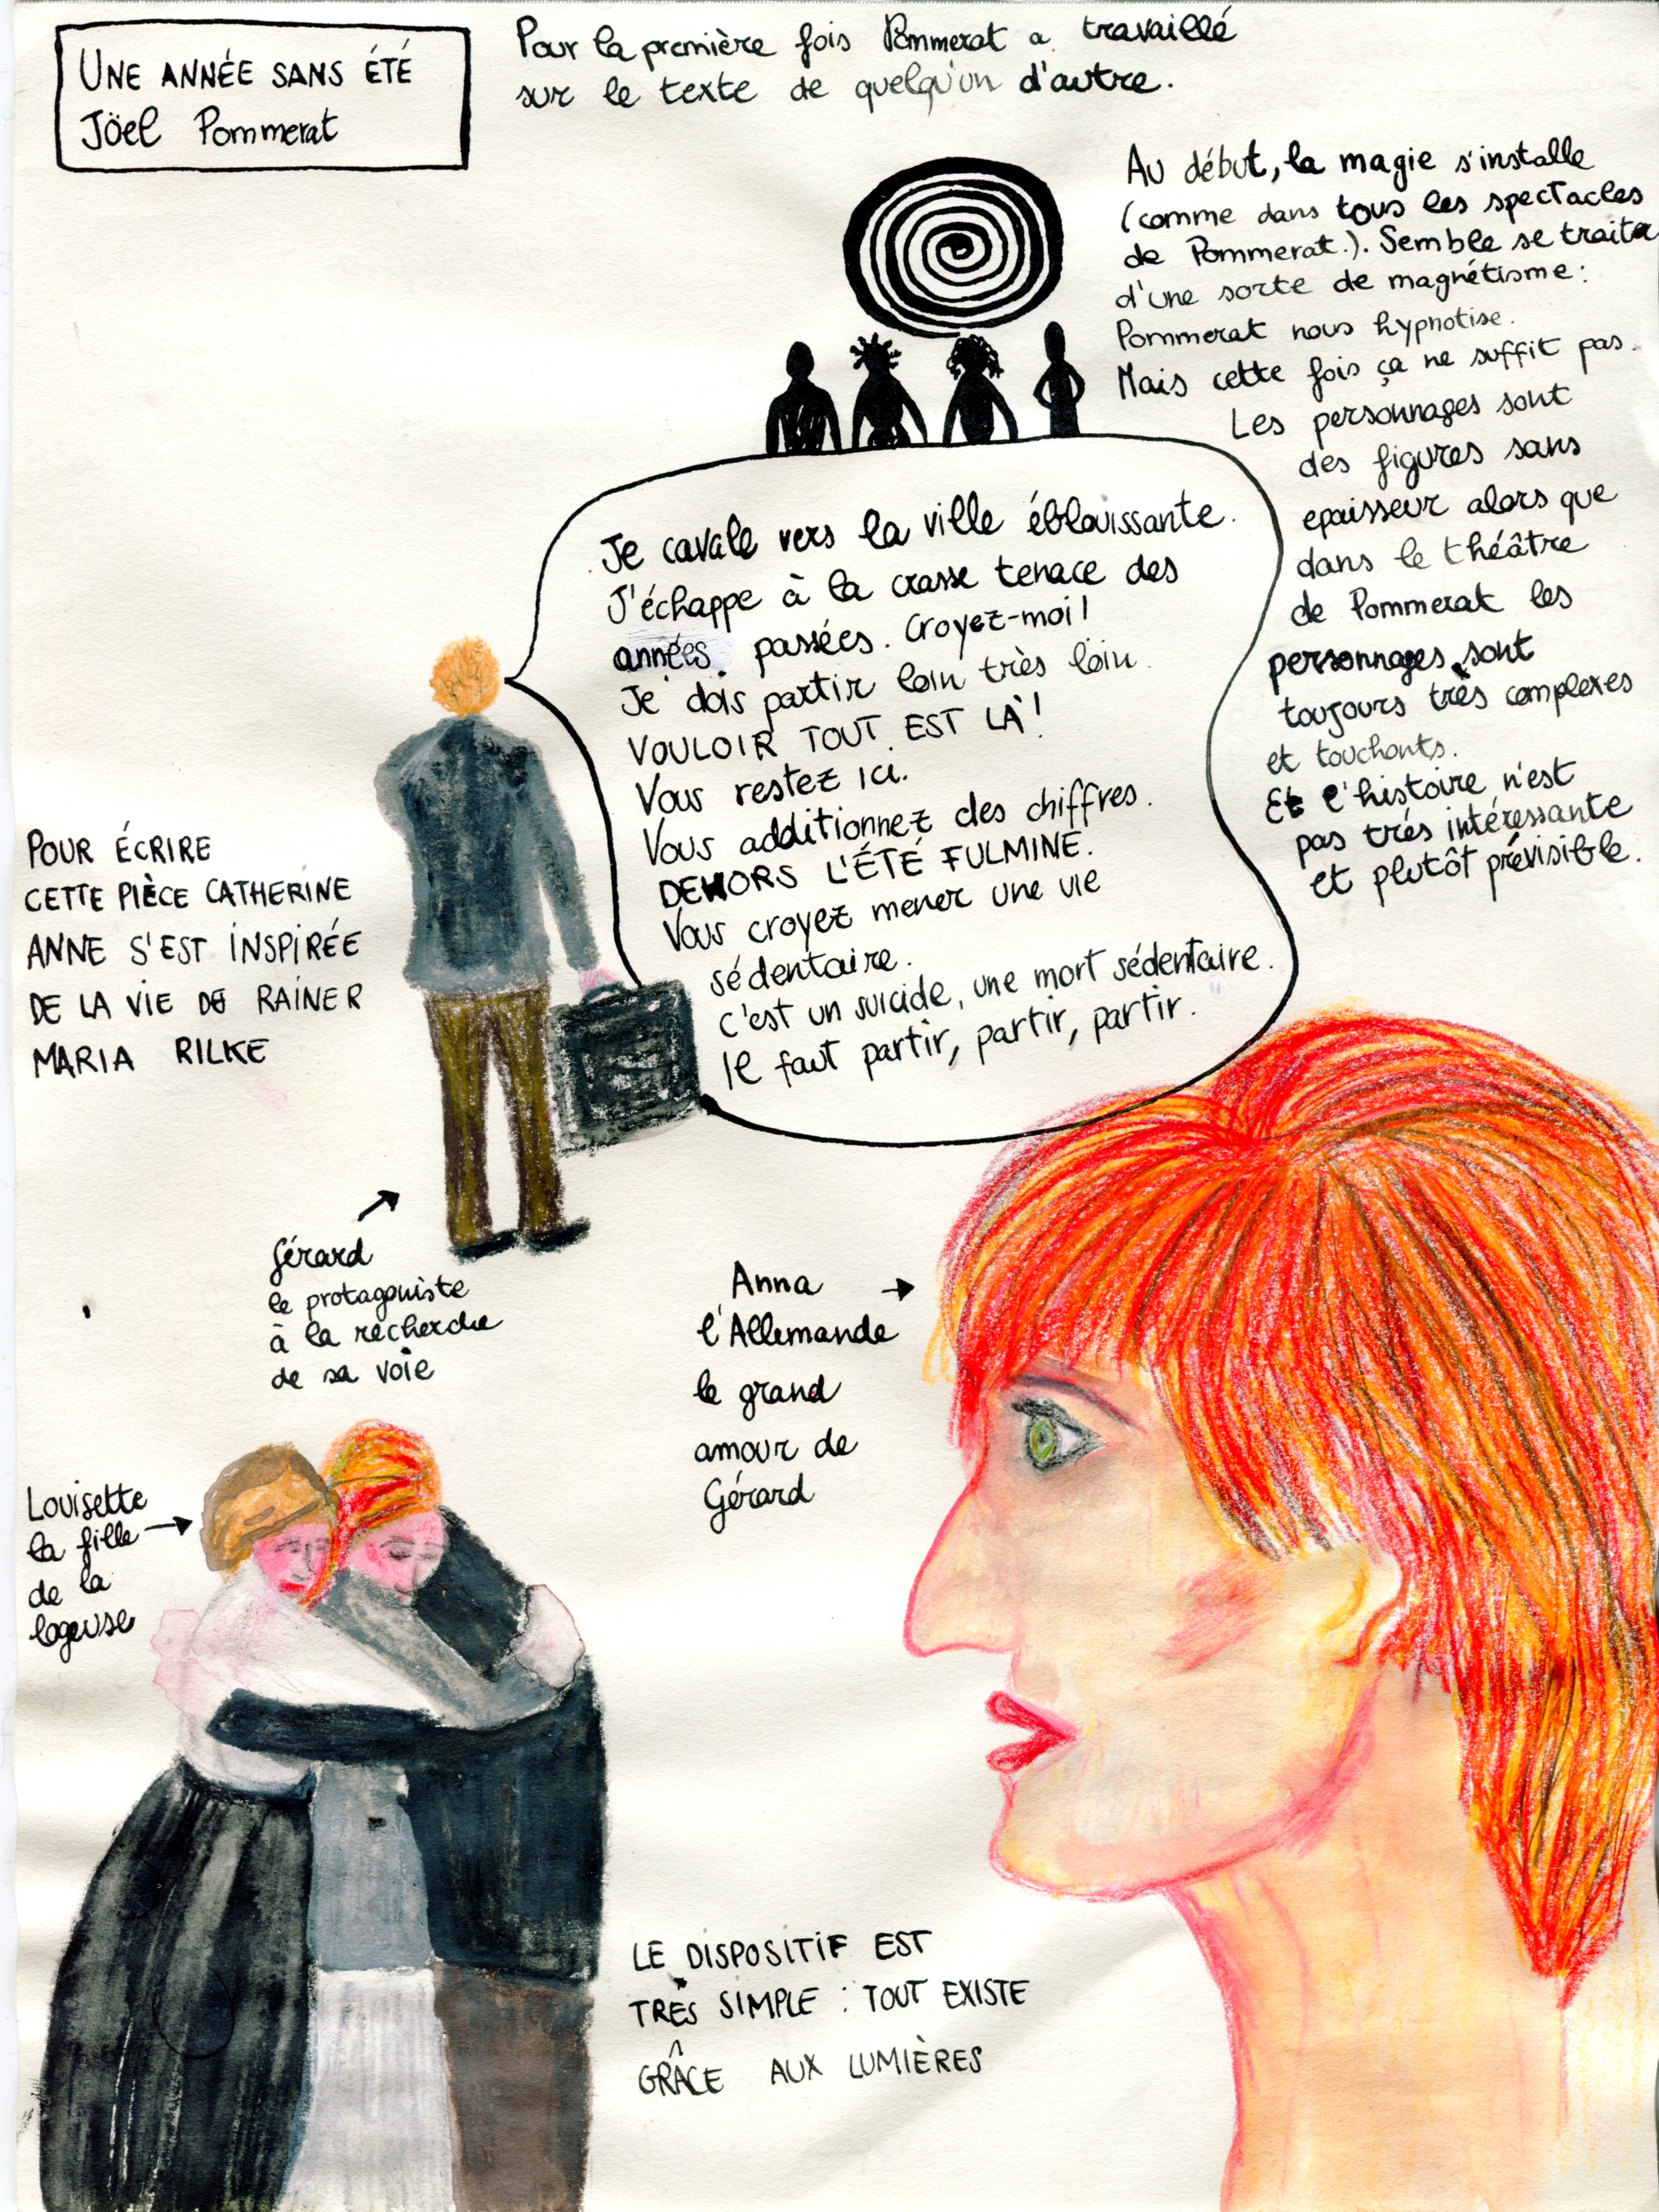 UNE ANNÉE SANS ÉTÉ
Jöel Pommerat
Pour la première fois Pommerat a travaillé
sur le texte de quelqu'un d'autre.
Au début, la magie s'installe
(comme dans tous les spectacles
de Pommerat.). Semble se traiter
d'une sorte de magnétisme:
Pommerat nous hypnotise.
Mais cette fois ça ne suffit pas.
Les personnages sont
des figures sans
epaisseur alors que
dans le théâtre
de Pommerat les
personnages sont
toujours très complexes
et touchants.
Et l'histoire n'est
pas très intéressante
et plutôt prévisible.
Je cavale vers la ville éblouissante.
J'échappe à la crasse tenace des
années passées. Croyez-moi!
Je dois partir loin très loin.
VOULOIR TOUT EST LÀ!
Vous restez ici.
Vous additionnez des chiffres.
DEHORS L'ÉTÉ FULMINE.
Vous croyez mener une vie
sédentaire.
C'est un suicide, une mort sédentaire.
Il faut partir, partir, partir.
POUR ÉCRIRE
CETTE PIÈCE CATHERINE
ANNE S'EST INSPIRÉE
DE LA VIE DE RAINER
MARIA RILKE
Gérard
le protagoniste
à la recherche
de sa voie
Anna
l'Allemande
le grand
amour de
Gérard
Louisette
la fille
de la
logeuse
LE DISPOSITIF EST
TRÈS SIMPLE : TOUT EXISTE
GRÂCE AUX LUMIÈRES